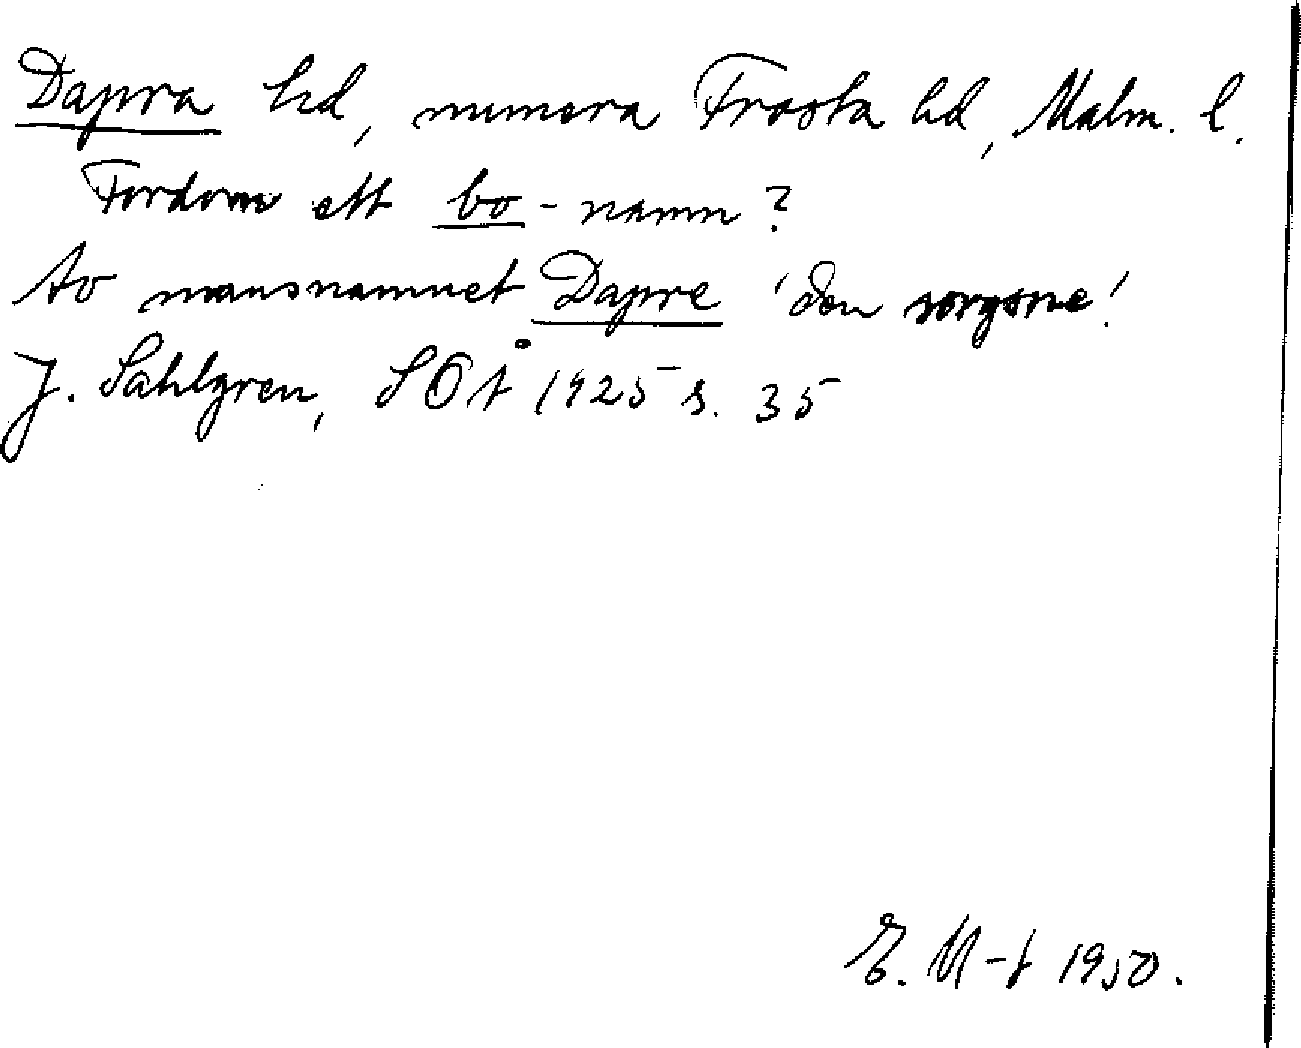 Dapra hd, numera Frosta hd, Malm. l.
Fordom ett bo-namn?
Av mansnamnet Dapre 'den sorgsne'.
J. Sahlgren, SOÅ 1925 s. 35
E. M-t 1950.